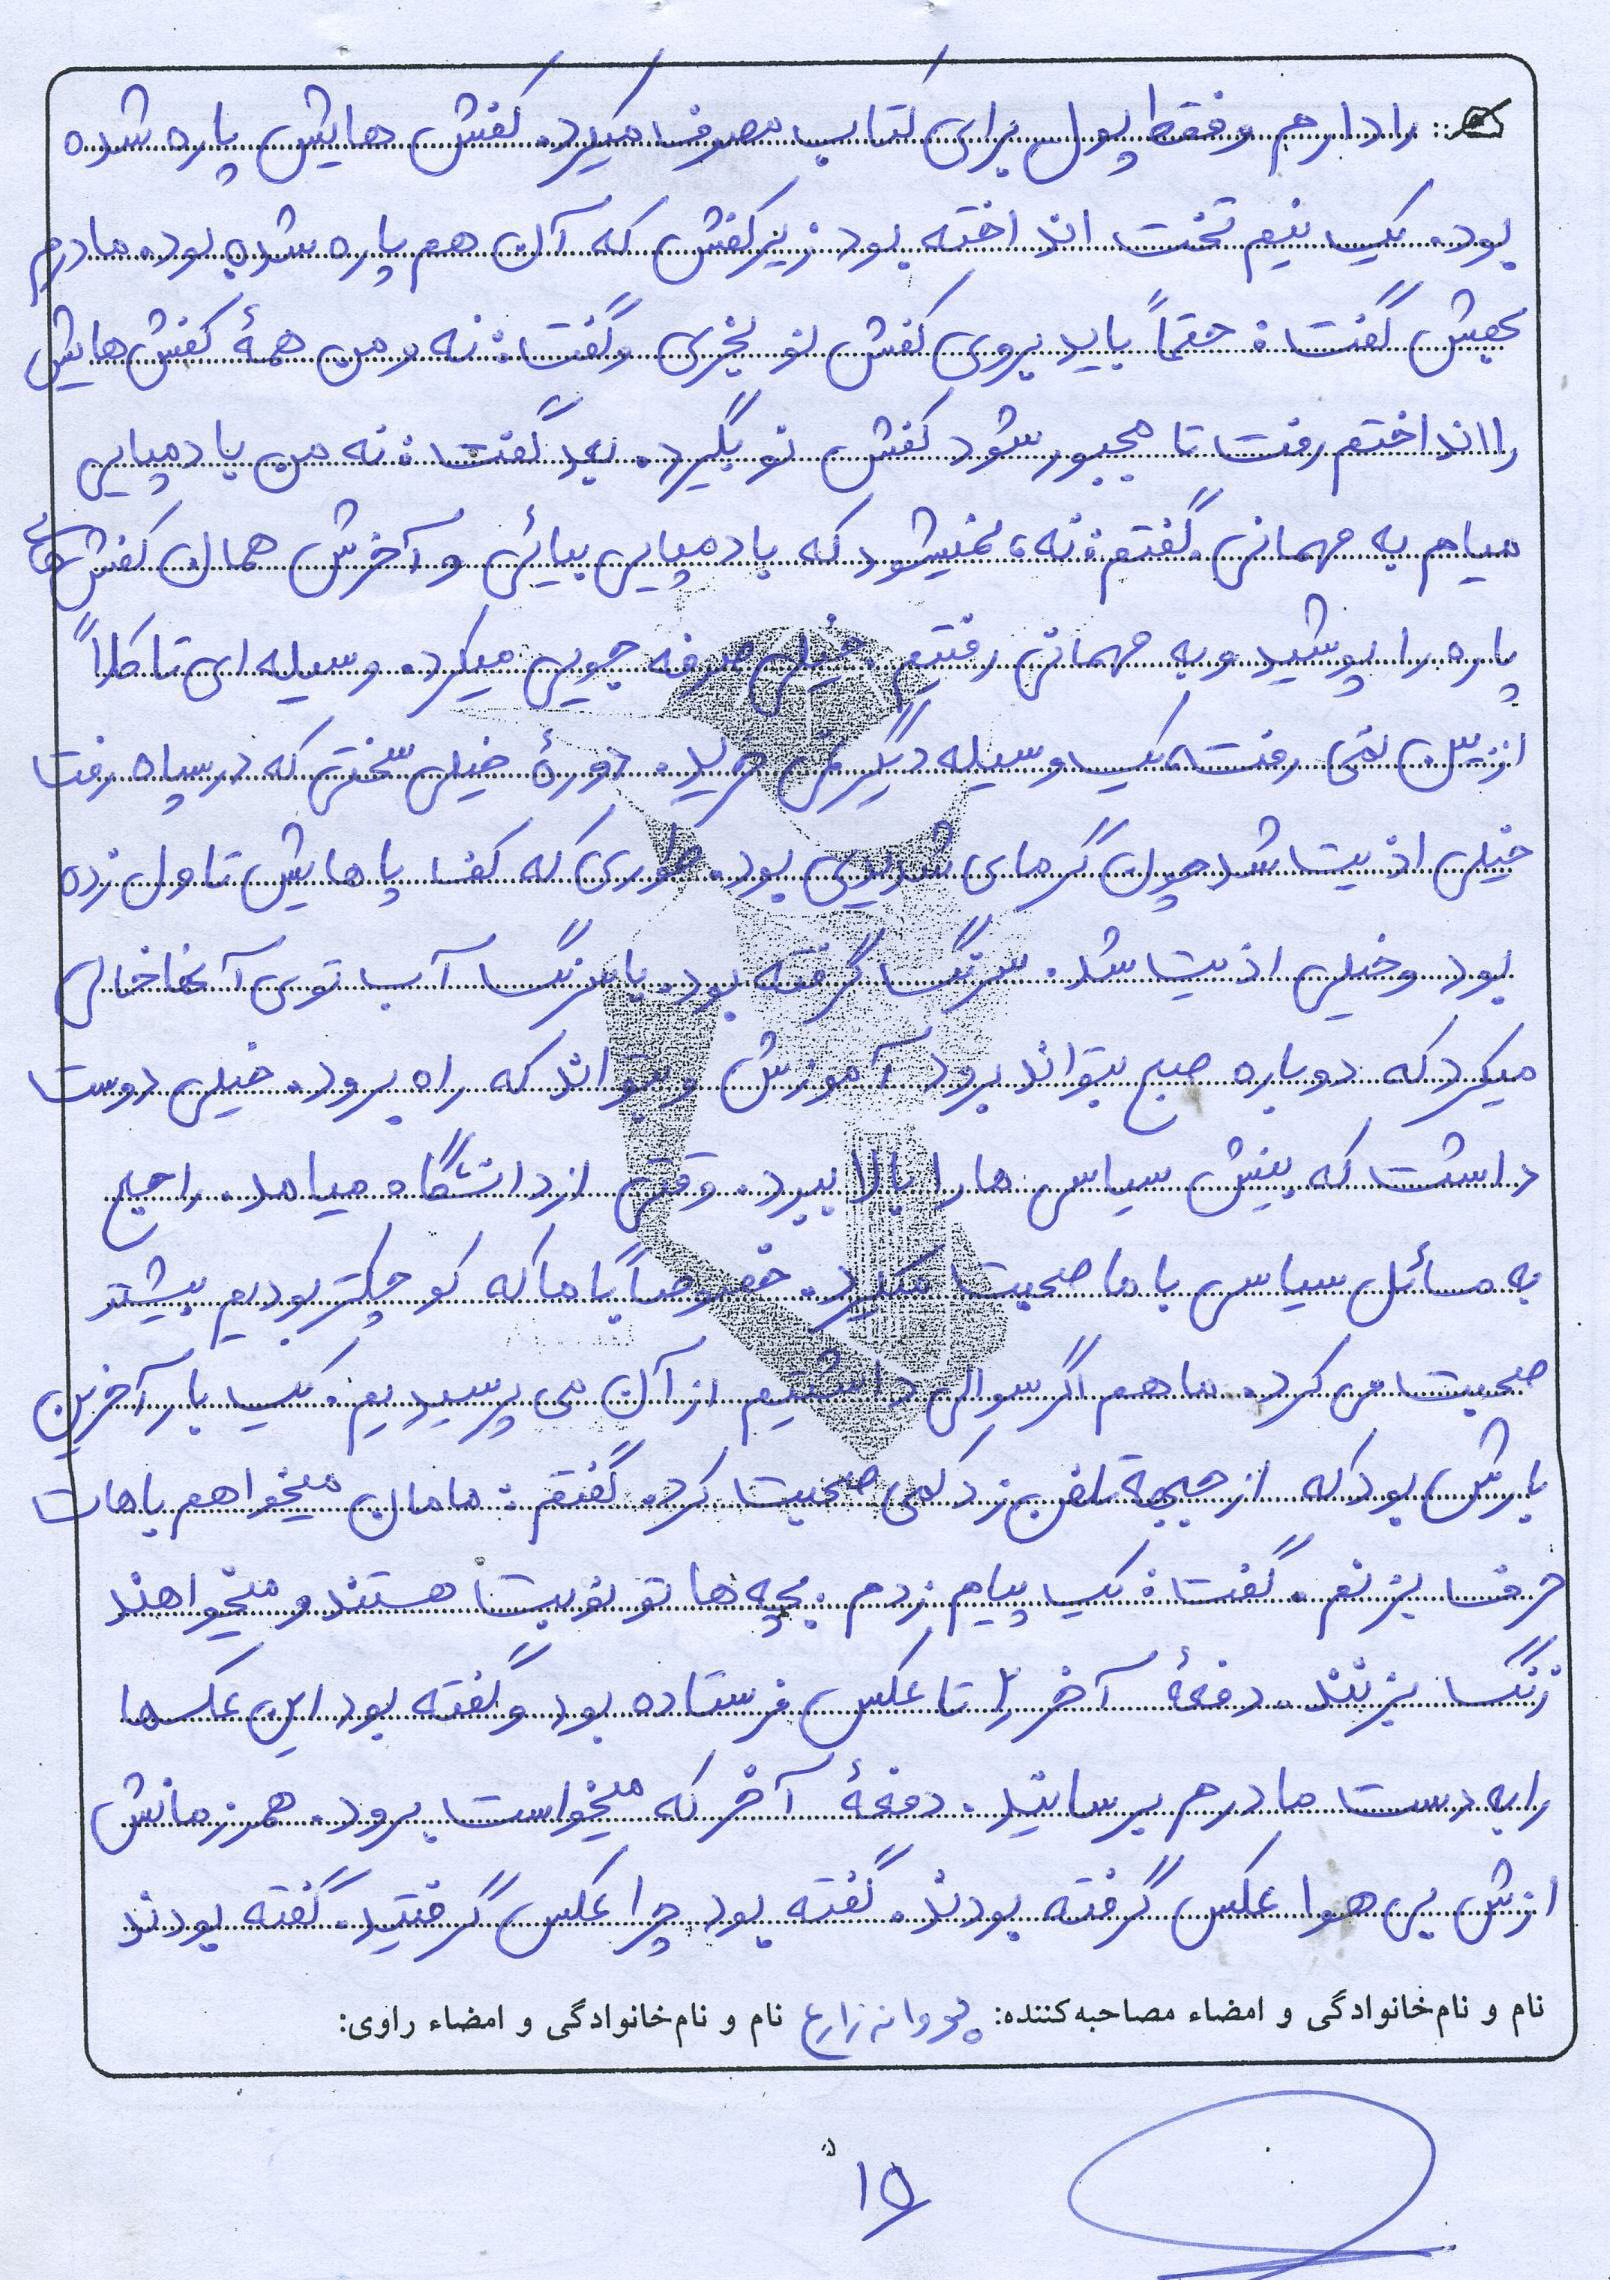 را دارم و فقط پول برای کتاب مصرف میکرد. کفش هایش پاره شده
بود. یک نیم تخت انداخته بود زیر کفش که آن هم پاره شده بود. مادرم
بهش گفت: حتماً باید بروی کفش نو بخری و گفت: نه و من همهٔ کفش هایش
را انداختم رفت تا مجبور شود کفش نو بگیرد. بعد گفت: نه من با دمپایی
میام به مهمانی. گفتم: نه، نمیشود که با دمپایی بیائی و آخرش همان کفش های
پاره را پوشید و به مهمانی رفتیم. خیلی صرفه جویی میکرد. وسیله ای تا کلاً
از بین نمی رفت، یک وسیله دیگر نمی خرید. دورهٔ خیلی سختی که در سپاه رفت
خیلی اذیت شد چون گرمای شدیدی بود. طوری که کف پاهایش تاول زده
بود و خیلی اذیت شد. سرنگ گرفته بود. با سرنگ آب توی آنها خالی
میکرد که دوباره صبح بتواند برود آموزش و بتواند که راه برود. خیلی دوست
داشت که بینش سیاسی ها را بالا ببرد. وقتی از دانشگاه میامد. راجع
به مسائل سیاسی با ما صحبت میکرد. خصوصاً با ما که کوچکتر بودیم بیشتر
صحبت می کرد. ما هم اگر سوالی داشتیم از آن می پرسیدیم. یک بار آخرین
بارش بود که از جبهه تلفن زد کمی صحبت کرد. گفتم: مامان میخواهم باهات
حرف بزنم. گفت: یک پیام زدم. بچه ها تو نوبت هستند و میخواهند
زنگ بزنند. دفعهٔ آخر تا عکس فرستاده بود و گفته بود این عکسها
را به دست مادرم برسانید. دفعهٔ آخر که میخواست برود. همرزمانش
ازش بی هوا عکس گرفته بودند. گفته بود چرا عکس گرفتید. گفته بودند
نام و نام‌خانوادگی و امضاء مصاحبه‌کننده: پروانه زارع نام و نام‌خانوادگی و امضاء راوی:
۱۵